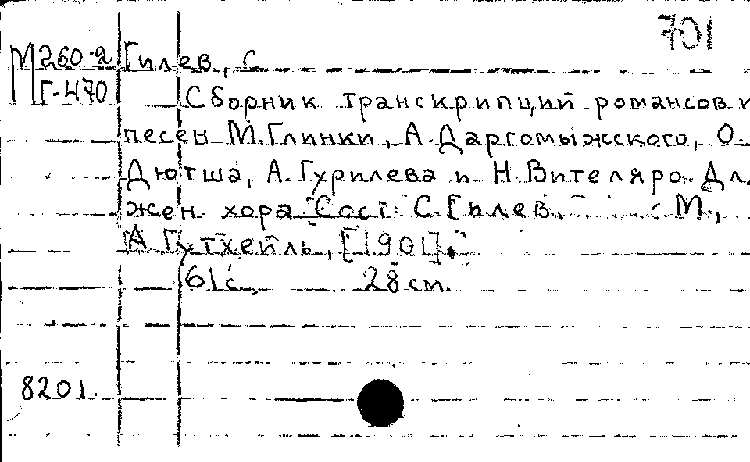 701
М260-2 Гилев, С.
Г-470 Сборник транскрипций романсов и
песен М. Глинки, А. Даргомыжского, О.
Дютша, А. Гурилева и Н. Вителяро. Дл.
жен. хора. Сост. С. Гилев. М.,
А. Гутхейль, [1901].
61с. 28 см.
8201.